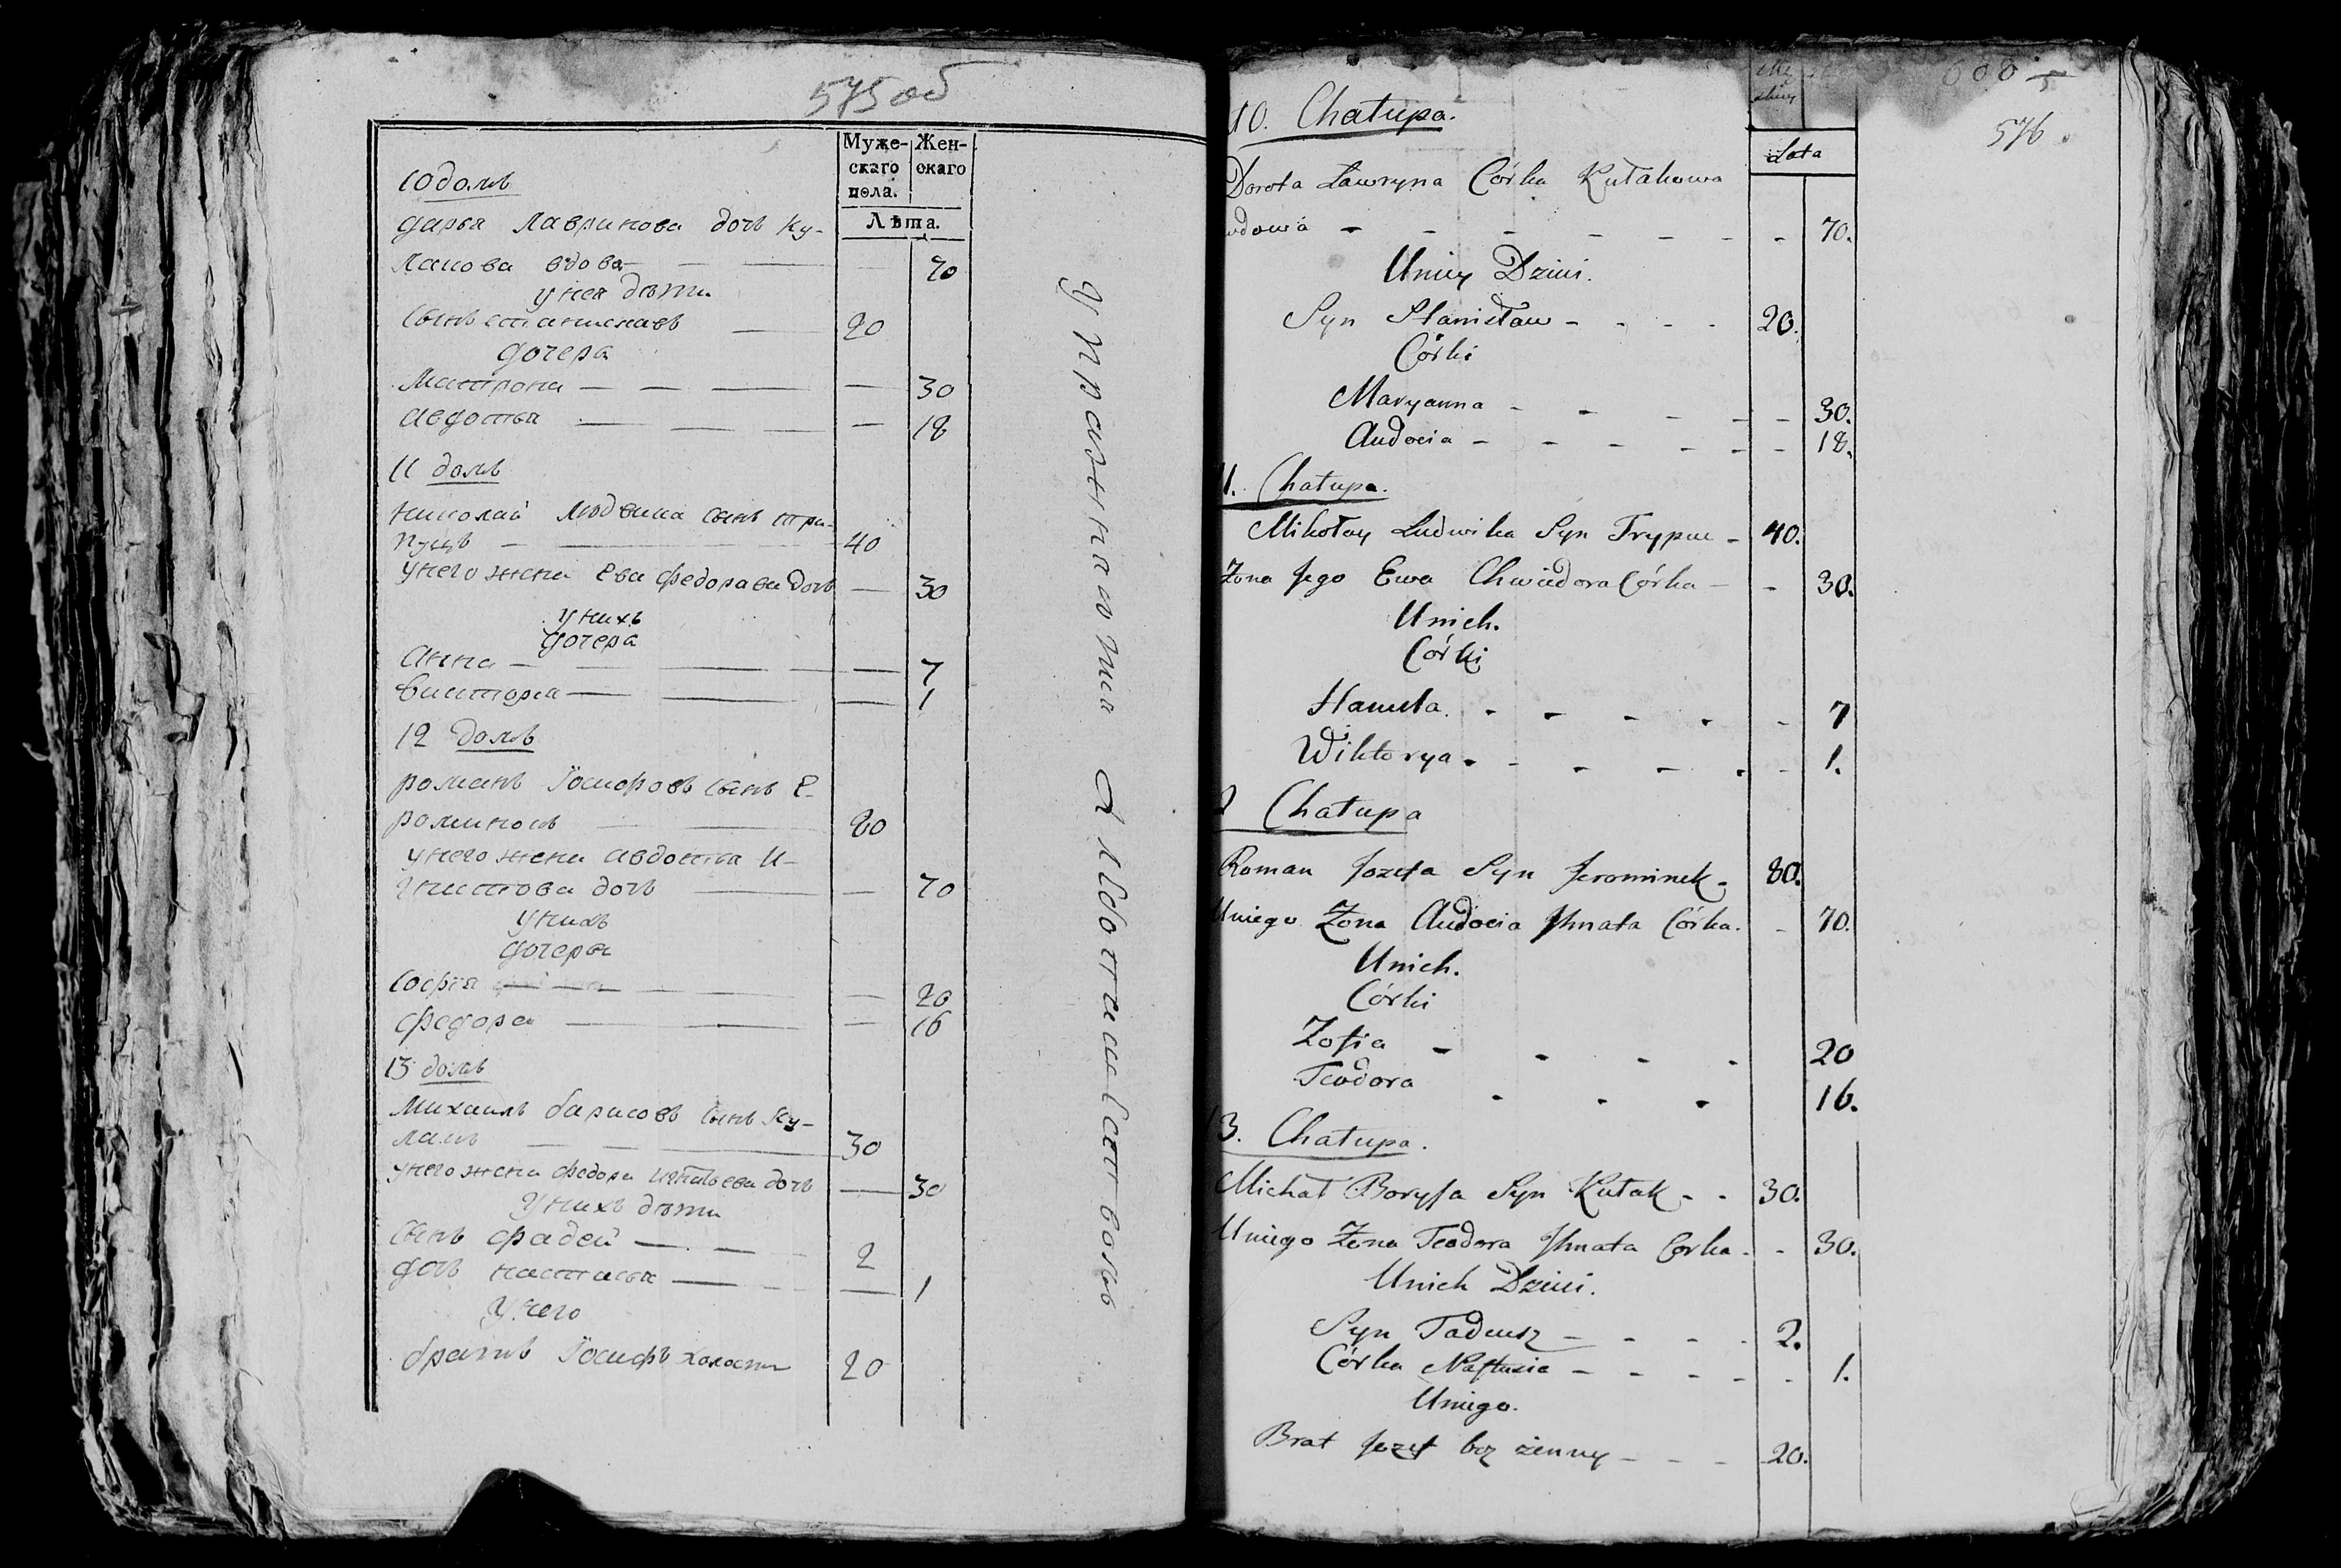 575 об
Муже- Жен-
скаго скаго
пола.
Лѣта.
10 домъ
дарья Лавринова дочь Ку-
лакова вдова — — — — 70
у нея дѣти
Сынъ станиславъ — 20
дочера
Матрона — — — — 30
авдотья — — — — 18
11 домъ
николай людвика сынъ тры-
пуцъ — — 40
у него жена Ева федорава дочь — 30
у нихъ
дочера
Анна — — — — 7
виктория — — — 1
12 домъ
романъ Іосифовъ сынъ Е-
роминокъ — — 80
у него жена авдотья И-
гнатова дочь — — 70
у нихъ
дочеры
Софія — — — — 20
федора — — — 16
13 домъ
Михаилъ барисовъ сынъ Ку-
лакъ — — — 30
у него жена федора игнатьева дочь — 30
у нихъ дѣти
Сынъ фадей — — — 2
дочь настасья — — — 1
у него
братъ Іосифъ холостъ 20
608
5
576
Lata
10. Chałupa.
Dorota Ławryna Córka Kułakowa
wdowa - - - - - - - 70.
Uniey Dzieci.
Syn Stanisław - - - - 20.
Córki
Maryanna - - - - - 30.
Audocia - - - - - - 18.
11. Chałupa.
Mikołay Ludwika Syn Trypuc - 40.
Żona Jego Ewa Chwiedora Córka - - 30.
Unich.
Córki
Hanusta. - - - - - 7
Wiktorya - - - - - - 1.
2 Chałupa
Roman Jozefa Syn Jerominek - 80.
Uniego Żona Audocia Jhnata Córka. - 70.
Unich.
Córki
Zofia - - - - 20
Teodora - - - 16.
13. Chałupa.
Michał Boryſa Syn Kułak - - 30.
Uniego Żona Teodora Jhnata Corka - - 30.
Unich Dzieci.
Syn Tadeusz - - - - 2.
Córka Naſtazia - - - - - - 1.
Uniego.
Brat Jozef bez żenny - - - 20.